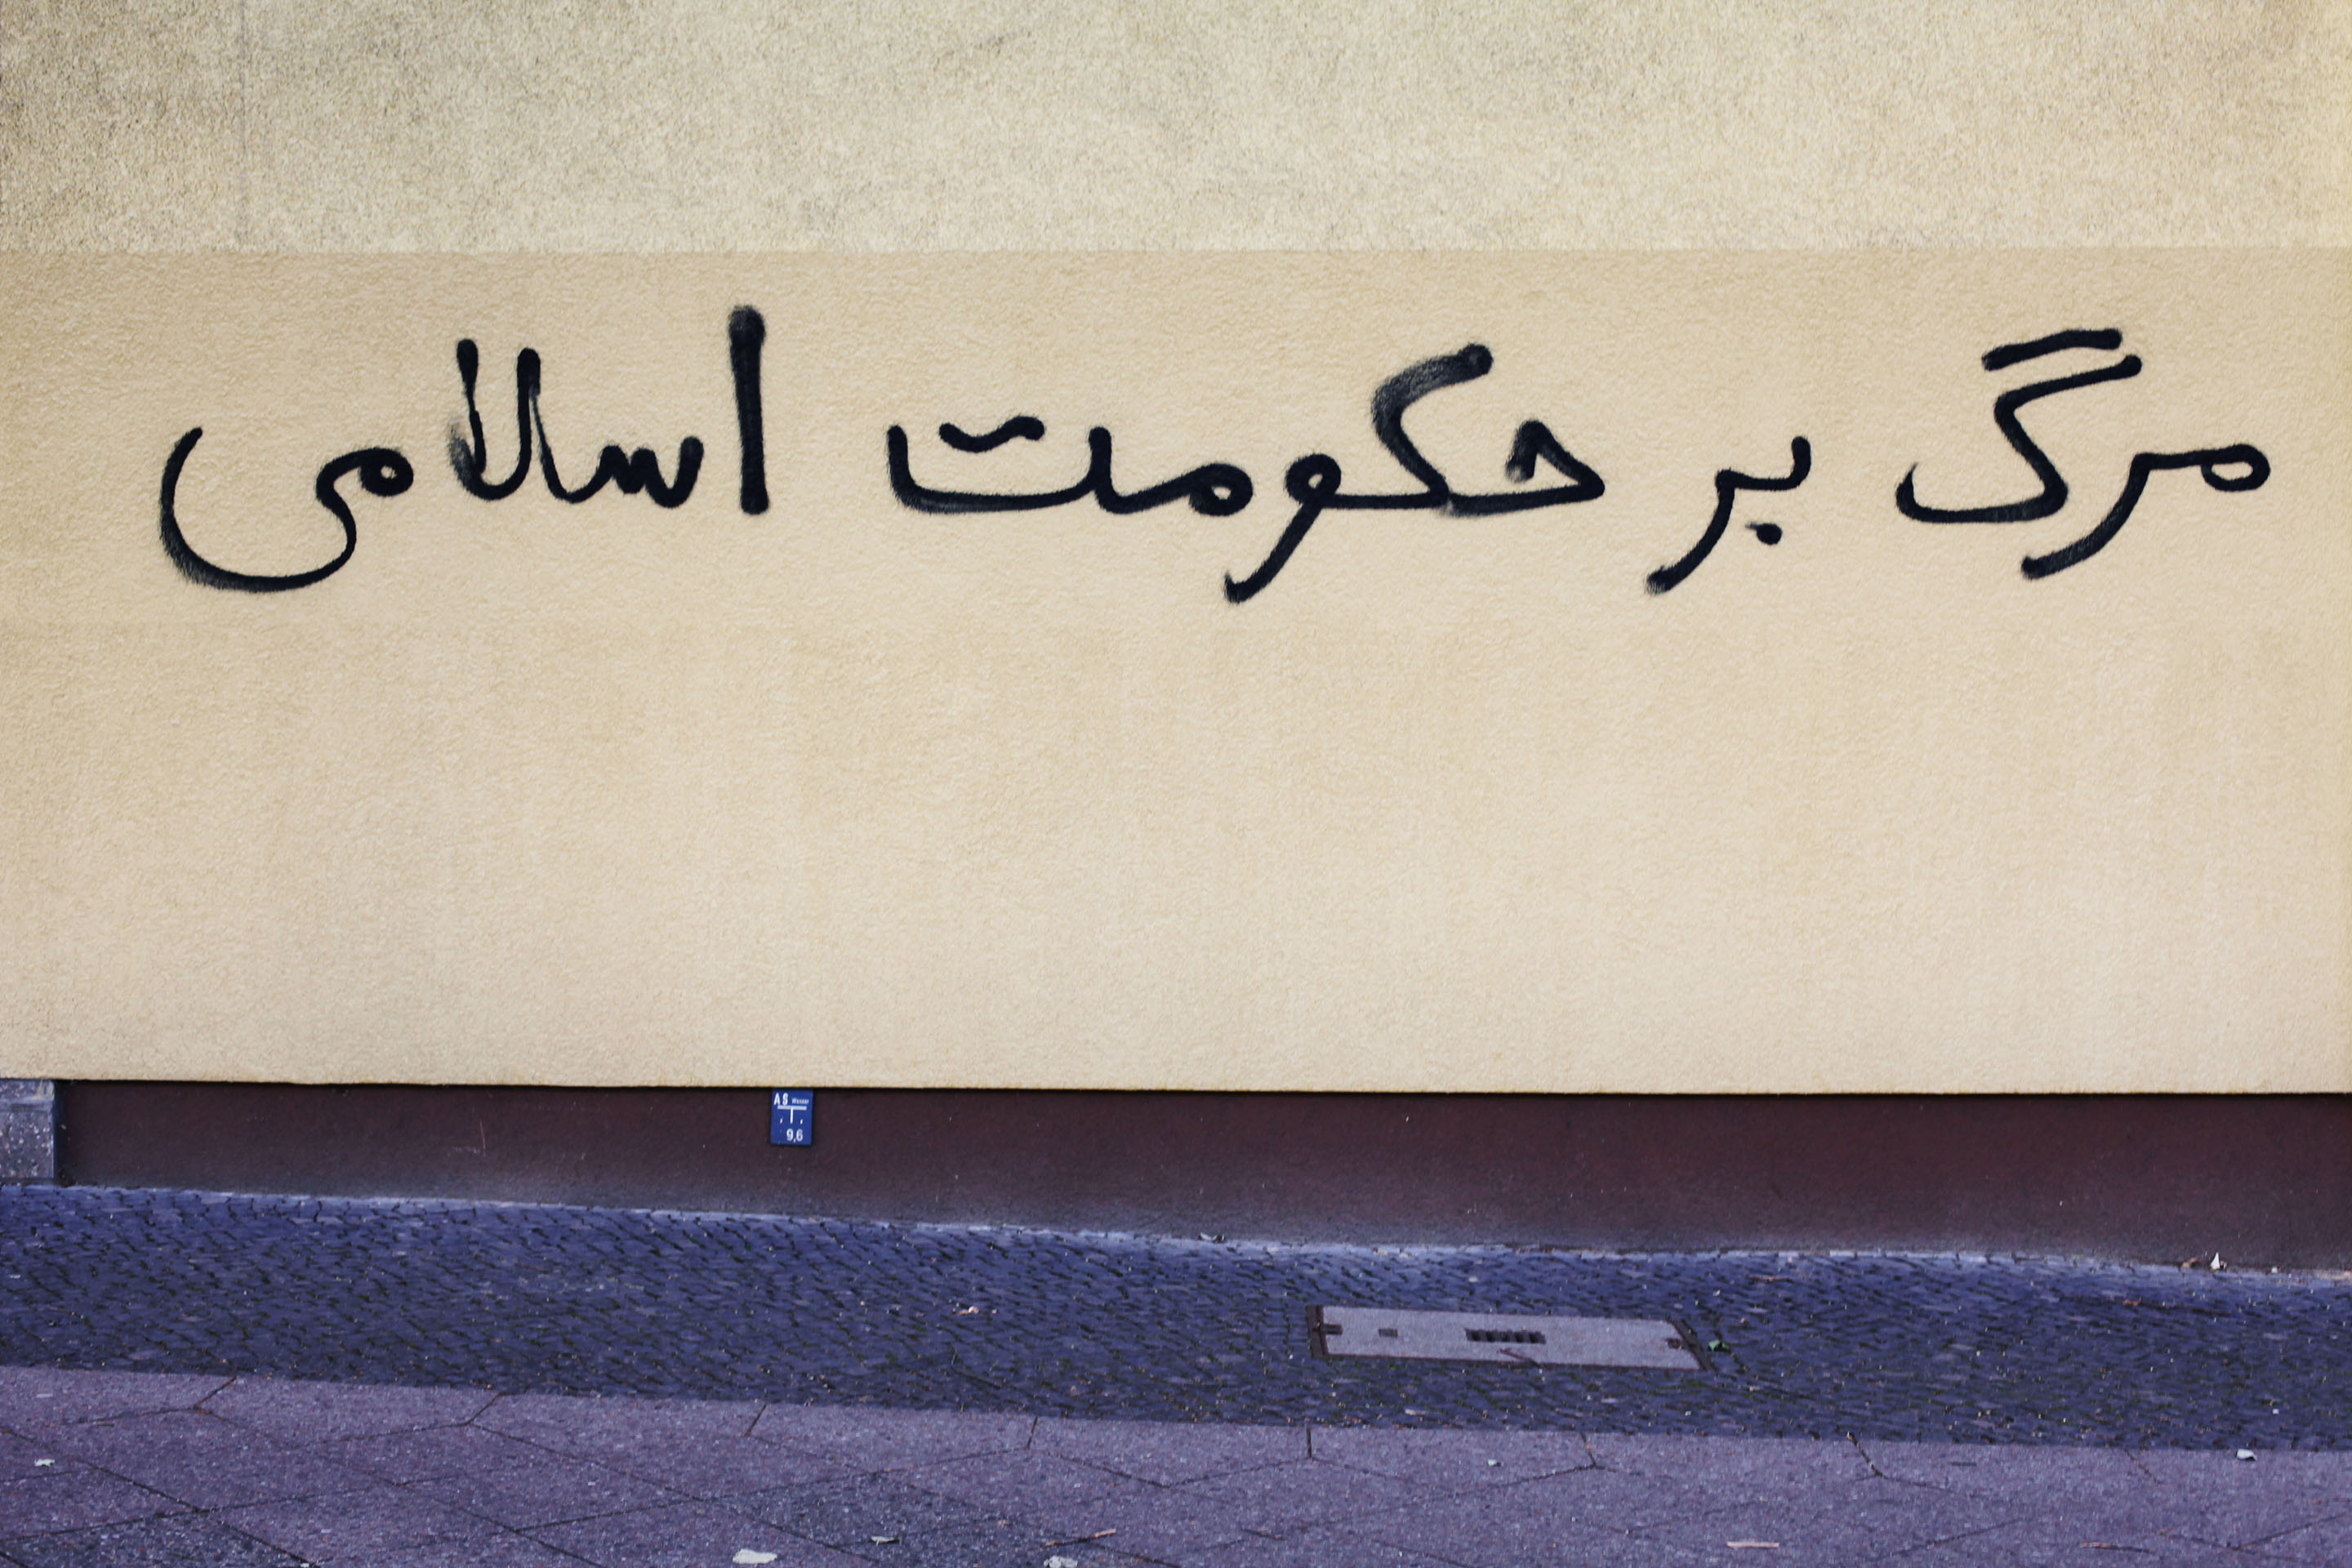 مرگ بر حکومت اسلامی
AS Wasser
9,6